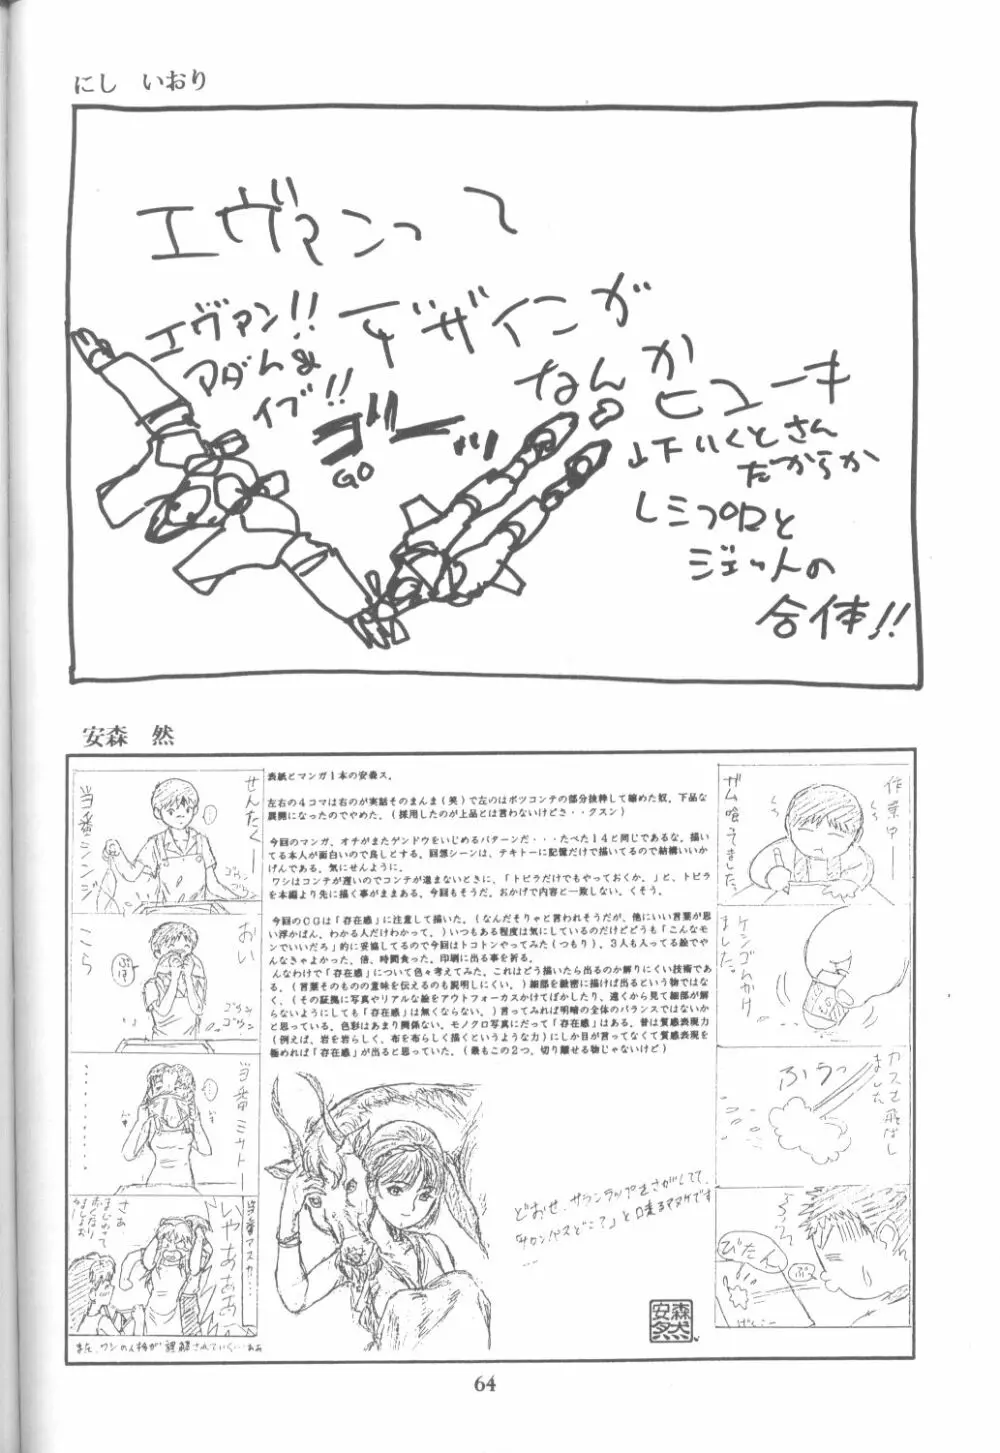 にし　いおり
エヴァンって
デザインが
なんか
ヒューキ
山下いくとさん
だからか
レシプロと
ジェットの
合体!!
エヴァン!!
アダム&
イブ!!
ゴーッ
GO
安森　然
表紙とマンガ1本の安森ス。
左右の4コマは右のが実話そのまんま(笑)で左のはボツコンテの部分抜粋して縮めた奴。下品な
展開になったのでやめた。(採用したのが上品とは言わないけどさ・・グスン)
今回のマンガ、オチがまたゲンドウをいじめるパターンだ・・・たべた14と同じであるな。描い
てる本人が面白いので良しとする。回想シーンは、テキトーに記憶だけで描いてるので結構いいか
げんである。気にせんように。
ワシはコンテが遅いのでコンテが進まないときに、「トビラだけでもやっておくか。」と、トビラ
を本編より先に描く事がままある。今回もそうだ。おかげで内容と一致しない。くそう。
今回のCGは「存在感」に注意して描いた。(なんだそりゃと言われそうだが、他にいい言葉が思
い浮かばん、わかる人だけわかって。)いつもある程度は気にしているのだけどどうも「こんなモ
ンでいいだろ」的に妥協してるので今回はトコトンやってみた(つもり)。3人も入ってる絵でや
んなきゃよかった。倍、時間食った。印刷に出る事を祈る。
んなわけで「存在感」について色々考えてみた。これはどう描いたら出るのか解りにくい技術であ
る。(言葉そのものの意味を伝えるのも説明しにくい。)細部を緻密に描けば出るという物ではな
く、(その証拠に写真やリアルな絵をアウトフォーカスかけてぼかしたり、遠くから見て細部が解
らないようにしても「存在感」は無くならない。)言ってみれば明暗の全体のバランスではないか
と思っている。色彩はあまり関係ない。モノクロ写真にだって「存在感」はある。昔は質感表現力
(例えば、岩を岩らしく、布を布らしく描くというような力)にしか目が言ってなくて質感表現を
極めれば「存在感」が出ると思っていた。(最もこの2つ、切り離せる物じゃないけど)
作業中——
ガム喰ってました。
ケシゴムかけ
ました。
カスを飛ばし
ました
ふうっ
ぷうっ
ぴたん
ぷ
げんこー
せんたくー
当番シンジ
ゴウン
ゴウン
おい
こら
ゴウン
ゴウン
当番ミサトー
・・・・・・・・
当番アスカ…
いやああああ
さあ、
どおせ、サランラップをさがしてて、
「サロンパスどこ?」と口走るアタマです
……
安森
然
64